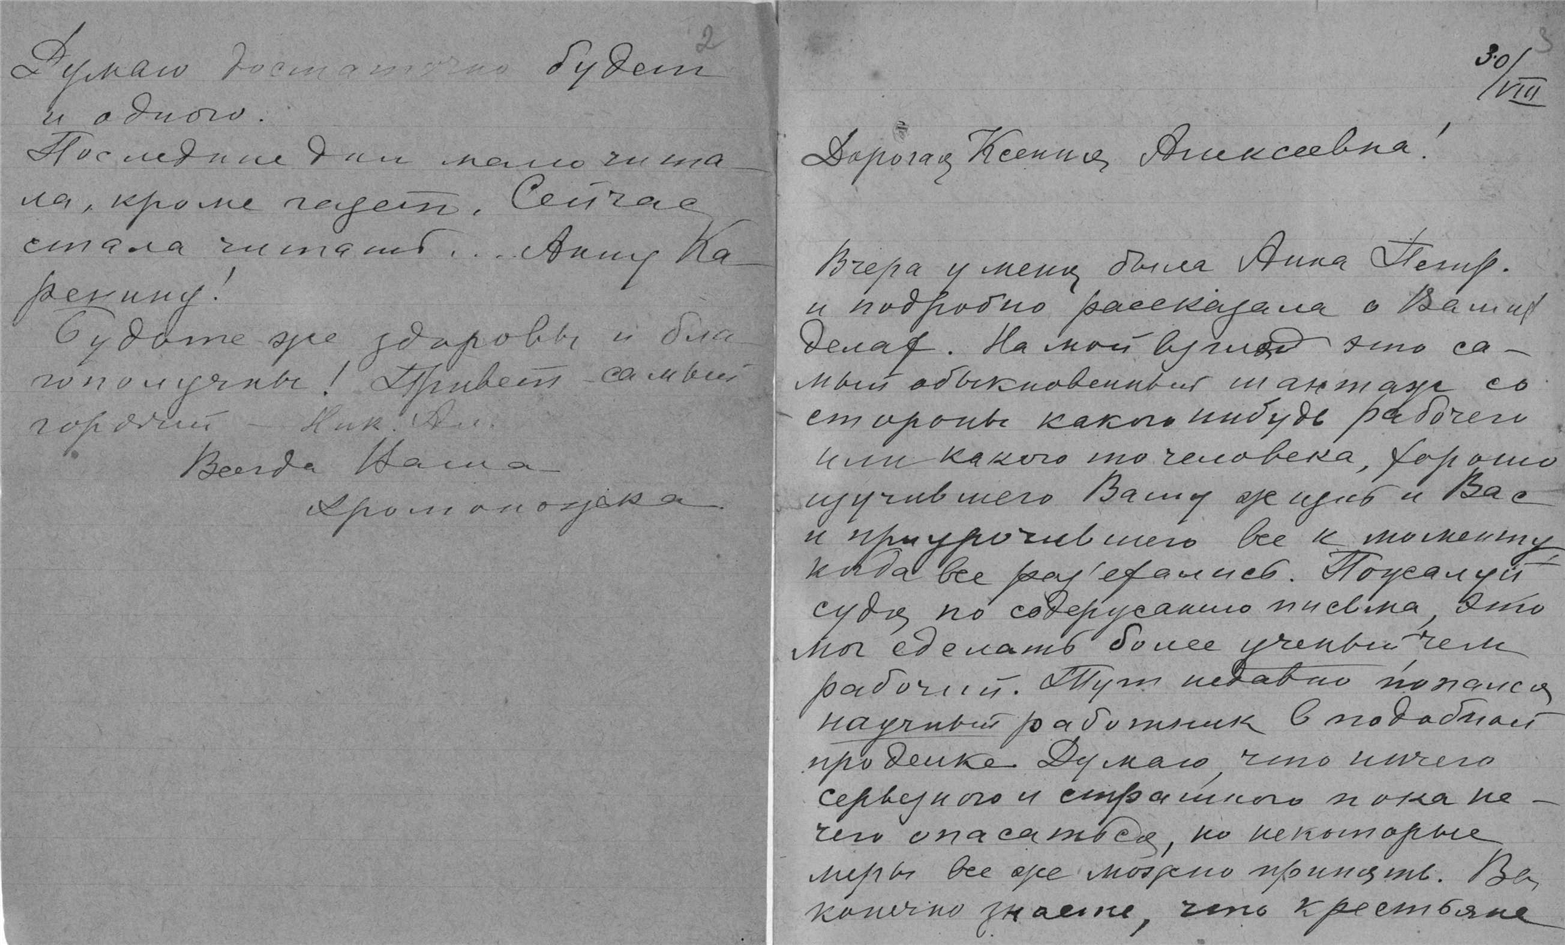 2
Думаю достаточно будет
и одного.
Последние дни мало чита-
ла, кроме газет. Сейчас
стала читать... Анну Ка-
ренину!
Будьте же здоровы и бла-
гополучны! Привет самый
горячий – Ник. Ал.
Всегда Ваша
Хромоножка
3
30/VIII
Дорогая Ксения Алексеевна!
Вчера у меня была Анна Петр.
и подробно рассказала о Ваших
делах. На мой взгляд это са-
мый обыкновенный шантаж со
стороны какого нибудь рабочего
или какого то человека, хорошо
изучившего Вашу жизнь и Вас
и приурочившего все к моменту,
когда все раз'ехались. Пожалуй
судя по содержанию письма, это
мог сделать более ученый чем
рабочий. Тут недавно попался
научный работник в подобной
проделке. Думаю, что ничего
серьезного и страшного пока не-
чего опасаться, но некоторые
меры все же можно принять. Вы,
конечно знаете, что крестьяне